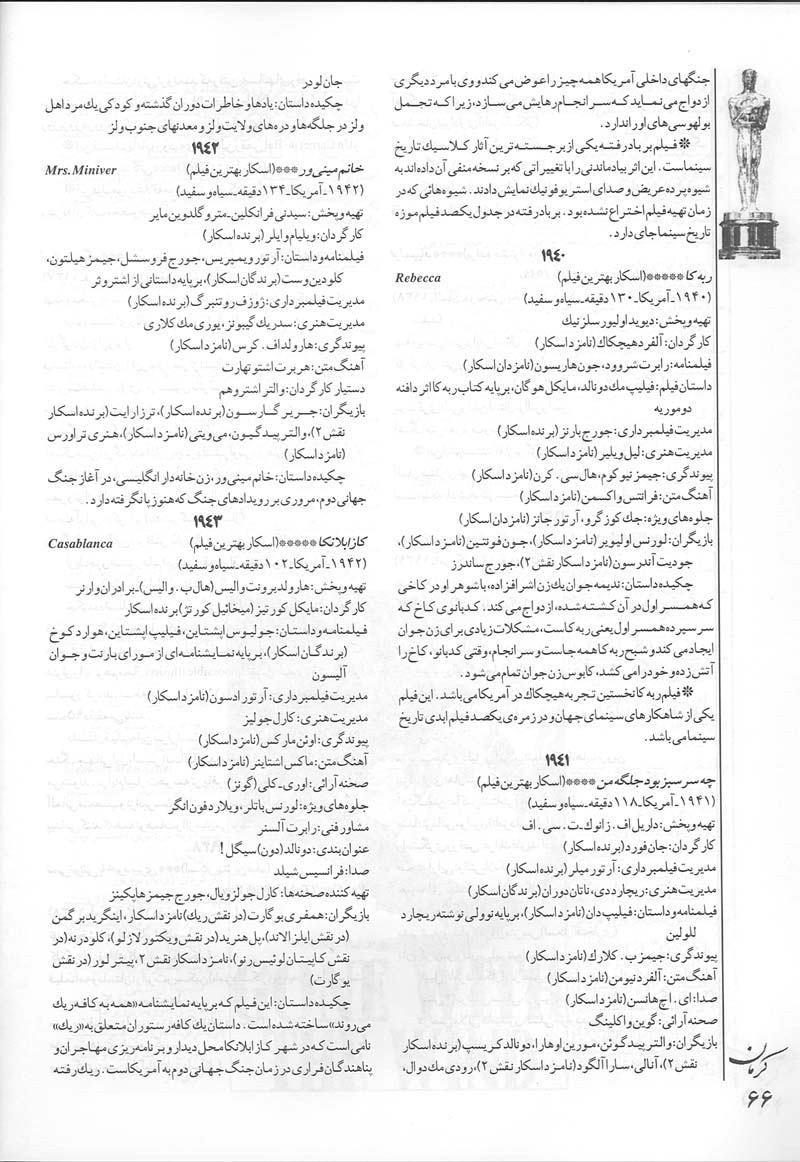 جنگهای داخلی آمریکا همه چیز را عوض می‌کند و وی با مرد دیگری
ازدواج می‌نماید که سرانجام رهایش می‌سازد، زیرا که تحمل
بولهوسی‌های او را ندارد.
* فیلم بر باد رفته یکی از برجسته‌ترین آثار کلاسیك تاریخ
سینماست. این اثر بیادماندنی را با تغییراتی که بر نسخه منفی آن داده‌اند به
شیوه پرده عریض و صدای استریوفونیك نمایش دادند. شیوه‌هائی که در
زمان تهیه فیلم اختراع نشده بود. بر باد رفته در جدول یکصد فیلم موزه
تاریخ سینما جای دارد.
۱۹٤۰
ربه کا ***** (اسکار بهترین فیلم) Rebecca
(۱۹٤۰ـ آمریکا ـ ۱۳۰ دقیقه ـ سیاه و سفید)
تهیه و پخش: دیوید اولیور سلزنیك
کارگردان: آلفرد هیچکاك (نامزد اسکار)
فیلمنامه: رابرت شروود، جون هاریسون (نامزدان اسکار)
داستان فیلم: فیلیپ مك دونالد، مایکل هوگان، بر پایه کتاب ربه کا اثر دافنه
دوموریه
مدیریت فیلمبرداری: جورج بارنز (برنده اسکار)
مدیریت هنری: لیل ویلیر (نامزد اسکار)
پیوندگری: جیمز نیوکوم، هال سی. کرن (نامزد اسکار)
آهنگ متن: فرانتس واکسمن (نامزد اسکار)
جلوه‌های ویژه: جك کوزگرو، آرتور جانز (نامزدان اسکار)
بازیگران: لورنس اولیویر (نامزد اسکار)، جون فونتین (نامزد اسکار)،
جودیت آندرسون (نامزد اسکار نقش ۲)، جورج ساندرز
چکیده داستان: ندیمه جوان یك زن اشرافزاده، با شوهر او در کاخی
که همسر اول در آن کشته شده، ازدواج می‌کند. کدبانوی کاخ که
سرسپرده همسر اول یعنی ربه کاست، مشکلات زیادی برای زن جوان
ایجاد می‌کند و شبح ربه کا همه جاست و سرانجام، وقتی کدبانو، کاخ را
آتش زده و خود را می‌کشد، کابوس زن جوان تمام می‌شود.
* فیلم ربه کا نخستین تجربه هیچکاك در آمریکا می‌باشد. این فیلم
یکی از شاهکارهای سینمای جهان و در زمره‌ی یکصد فیلم ابدی تاریخ
سینما می‌باشد.
۱۹٤۱
چه سرسبز بود جلگه من **** (اسکار بهترین فیلم)
(۱۹٤۱ـ آمریکا ـ ۱۱۸ دقیقه ـ سیاه و سفید)
تهیه و پخش: داریل اف. زانوك ـ ت. سی. اف
کارگردان: جان فورد (برنده اسکار)
مدیریت فیلمبرداری: آرتور میلر (برنده اسکار)
مدیریت هنری: ریچارد دی، ناتان دوران (برندگان اسکار)
فیلمنامه و داستان: فیلیپ دان (نامزد اسکار)، بر پایه نوولی نوشته ریچارد
للولین
پیوندگری: جیمز ب. کلارك (نامزد اسکار)
آهنگ متن: آلفرد نیومن (نامزد اسکار)
صدا: ای. اچ هانسن (نامزد اسکار)
صحنه آرائی: گوین واکلینگ
بازیگران: والتر پیدگوئن، مورین اوهارا، دونالد کریسپ (برنده اسکار
نقش ۲)، آنالی، سارا آلگود (نامزد اسکار نقش ۲)، رودی مك دوال،
جان لودر
چکیده داستان: یادها و خاطرات دوران گذشته و کودکی یك مرد اهل
ولز در جلگه‌ها و دره‌های ولایت ولز و معدنهای جنوب ولز
۱۹٤۲
خانم مینی ور *** (اسکار بهترین فیلم) Mrs. Miniver
(۱۹٤۲ـ آمریکا ـ ۱۳٤ دقیقه ـ سیاه و سفید)
تهیه و پخش: سیدنی فرانکلین ـ مترو گلدوین مایر
کارگردان: ویلیام وایلر (برنده اسکار)
فیلمنامه و داستان: آرتور ویمپریس، جورج فروسشل، جیمز هیلتون،
کلودین وست (برندگان اسکار)، بر پایه داستانی از اشتروثر
مدیریت فیلمبرداری: ژوزف روتنبرگ (برنده اسکار)
مدیریت هنری: سدریك گیبونز، یوری مك کلاری
پیوندگری: هارولد اف. کرس (نامزد اسکار)
آهنگ متن: هربرت اشتوتهارت
دستیار کارگردان: والتر اشتروهم
بازیگران: جریر گارسون (برنده اسکار)، ترزا رایت (برنده اسکار
نقش ۲)، والتر پیدگیون، می‌ویتی (نامزد اسکار)، هنری تراورس
(نامزد اسکار)
چکیده داستان: خانم مینی ور، زن خانه‌دار انگلیسی، در آغاز جنگ
جهانی دوم، مروری بر رویدادهای جنگ که هنوز پا نگرفته دارد.
۱۹٤۳
کازابلانکا ***** (اسکار بهترین فیلم) Casablanca
(۱۹٤۲ـ آمریکا ـ ۱۰۲ دقیقه ـ سیاه و سفید)
تهیه و پخش: هارولد برونت والیس (هال ب. والیس) ـ برادران وارنر
کارگردان: مایکل کورتیز (میخائیل کورتز) برنده اسکار
فیلمنامه و داستان: جولیوس اپشتاین، فیلیپ اپشتاین، هوارد کوخ
(برندگان اسکار)، بر پایه نمایشنامه‌ای از مورای بارنت و جوان
آلیسون
مدیریت فیلمبرداری: آرتور ادسون (نامزد اسکار)
مدیریت هنری: کارل جولیز
پیوندگری: اوئن مارکس (نامزد اسکار)
آهنگ متن: ماکس اشتاینر (نامزد اسکار)
صحنه آرائی: اوری ـ کلی (گونز)
جلوه‌های ویژه: لورنس باتلر، ویلارد فون انگر
مشاور فنی: رابرت آلسنر
عنوان بندی: دونالد (دون) سیگل!
صدا: فرانسیس شیلد
تهیه کننده صحنه‌ها: کارل جولز ویال، جورج جیمز هاپکینز
بازیگران: همفری بوگارت (در نقش ریك) نامزد اسکار، اینگرید برگمن
(در نقش ایلزالاند)، پل هنرید (در نقش ویکتور لازلو)، کلود رنه (در
نقش کاپیتان لوئیس رنو)، نامزد اسکار نقش ۲، پیتر لور (در نقش
یوگارت)
چکیده داستان: این فیلم که بر پایه نمایشنامه «همه به کافه ریك
می‌روند» ساخته شده است. داستان یك کافه رستوران متعلق به «ریك»
نامی است که در شهر کازابلانکا محل دیدار و برنامه‌ریزی مهاجران و
پناهندگان فراری در زمان جنگ جهانی دوم به آمریکاست. ریك رفته
کرمان
۶۶